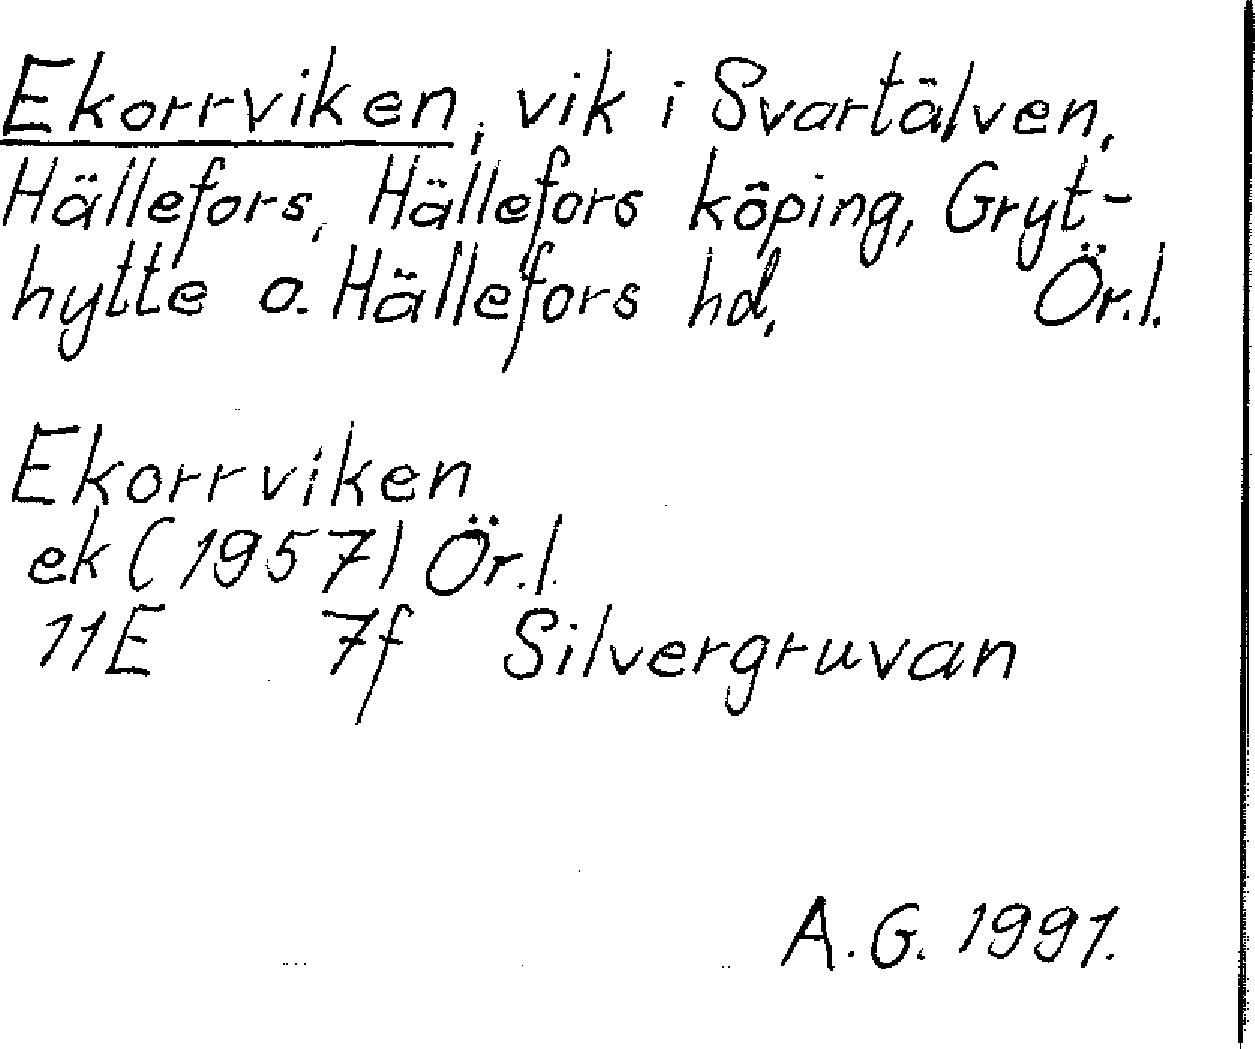 Ekorrviken, vik i Svartälven,
Hällefors, Hällefors köping, Gryt-
hytte o. Hällefors hd, Ör.l.
Ekorrviken
ek (1957) Ör.l.
11E 7f Silvergruvan
A.G. 1991.